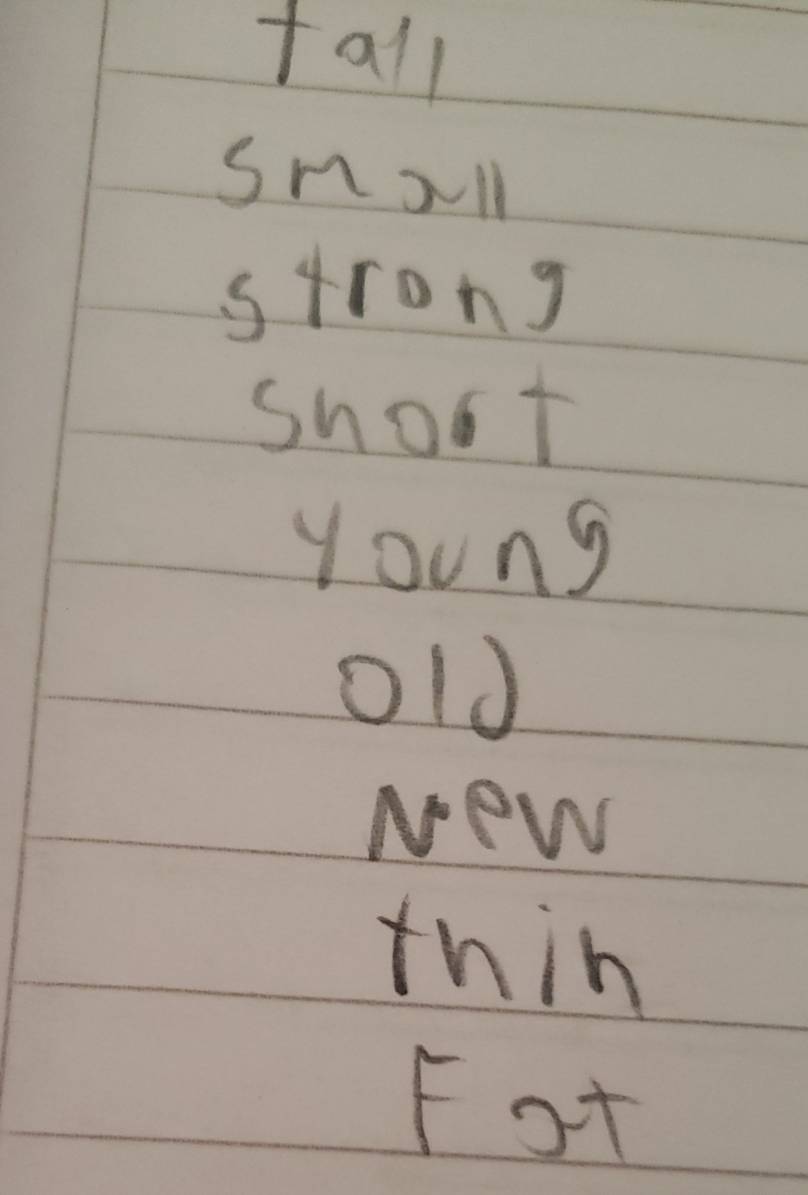 tall
small
strong
short
young
old
New
thin
Fat